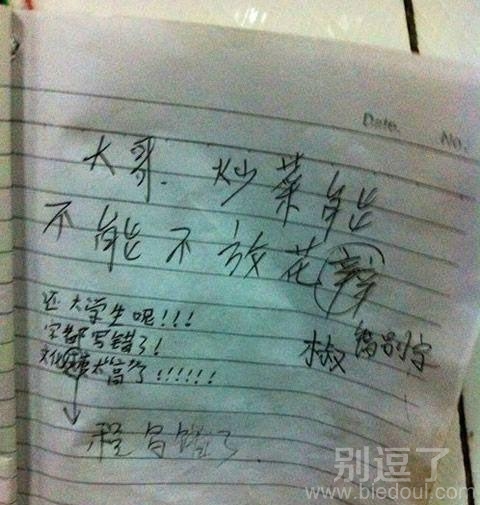 Date. No.
大哥.炒菜能
不能不放花
椒 错别字
还大学生呢!!!
字都写错了!
文化太"高"了!!!!!!
程写错了.
别逗了
www.biedoul.com